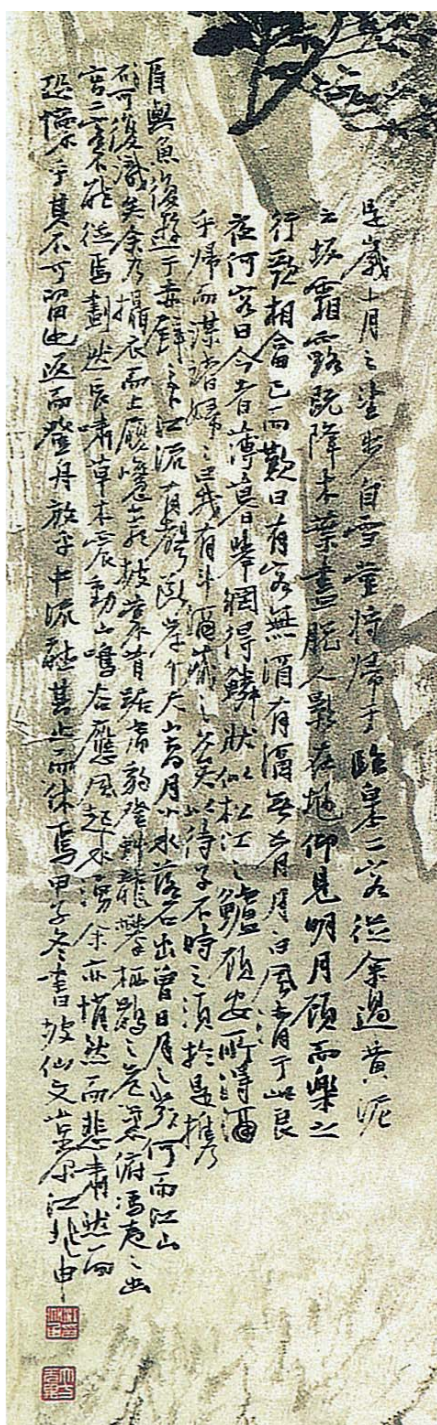 是歲十月之望步自雪堂將歸于臨皋二客從余過黃泥
之坂霜露既降木葉盡脫人影在地仰見明月顧而樂之
行歌相答已而歎曰有客無酒有酒無肴月白風清此良
夜何客曰今者薄暮舉網得鱗狀似松江之鱸顧安所得酒
乎歸而謀諸婦婦曰我有斗酒藏之久矣以待子不時之須於是攜
酒與魚復遊于赤壁之下江流有聲斷岸千尺山高月小水落石出曾日月之幾何而江山
不可復識矣余乃攝衣而上履巉巖披蒙茸踞虎豹登虯龍攀栖鶻之危巢俯馮夷之幽
宮二客不能從焉劃然長嘯草木震動山鳴谷應風起水湧余亦悄然而悲肅然而
恐懍乎其不可留也返而登舟放乎中流聽其止而休焉甲子冬書坡仙文江兆申